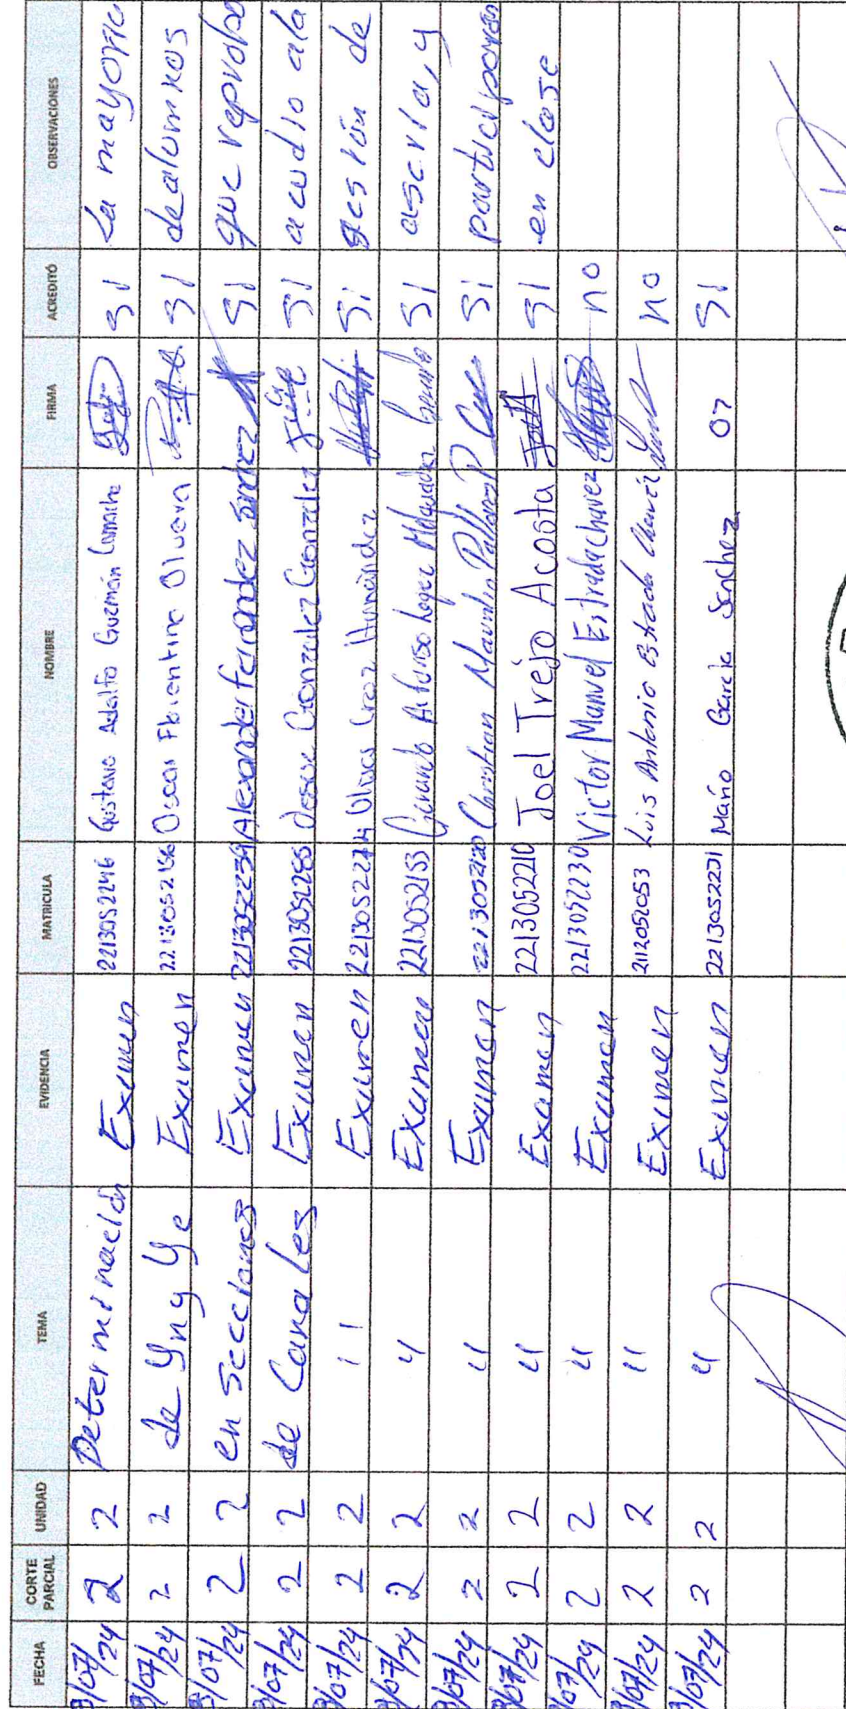 FECHA CORTE PARCIAL UNIDAD TEMA EVIDENCIA MATRICULA NOMBRE FIRMA ACREDITÓ OBSERVACIONES
/07/24 2 2 Determinación Examen 2213052246 Gustavo Adolfo Guzmán Camacho si La mayoria
/07/24 2 2 de Yn y Ye Examen 2213052156 Oscar Florentino Olvera si de alumnos
/07/24 2 2 en secciones Examen 2213052239 Alexander fernandez si que reprobo
/07/24 2 2 de Canales Examen 2213052285 Gonzalez Gonzalez si acudio a la
/07/24 2 2 11 Examen Ulises Cruz Hernández si de
/07/24 2 2 " Examen 2213052153 Gerardo Alfonso Lopez si y
/07/24 2 2 " Examen 2213052120 Christian Mauricio si
/07/24 2 2 " Examen 2213052210 Joel Trejo Acosta si en clase
/07/24 2 2 " Examen 2213052230 Victor Manuel Estrada chavez no
/07/24 2 2 " Examen 2112052053 Luis Antonio Estrada Chavez no
/07/24 2 2 " Examen 2213052231 Mario García Sanchez si